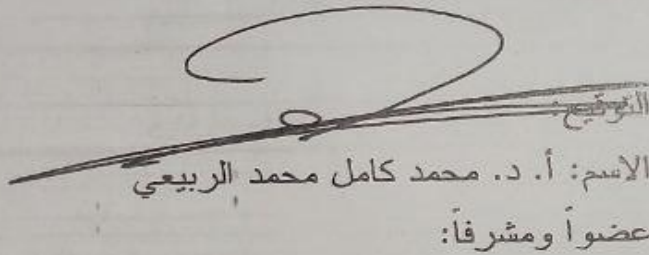 التوقيع:
الاسم: أ. د. محمد كامل محمد الربيعي
عضواً ومشرفاً: